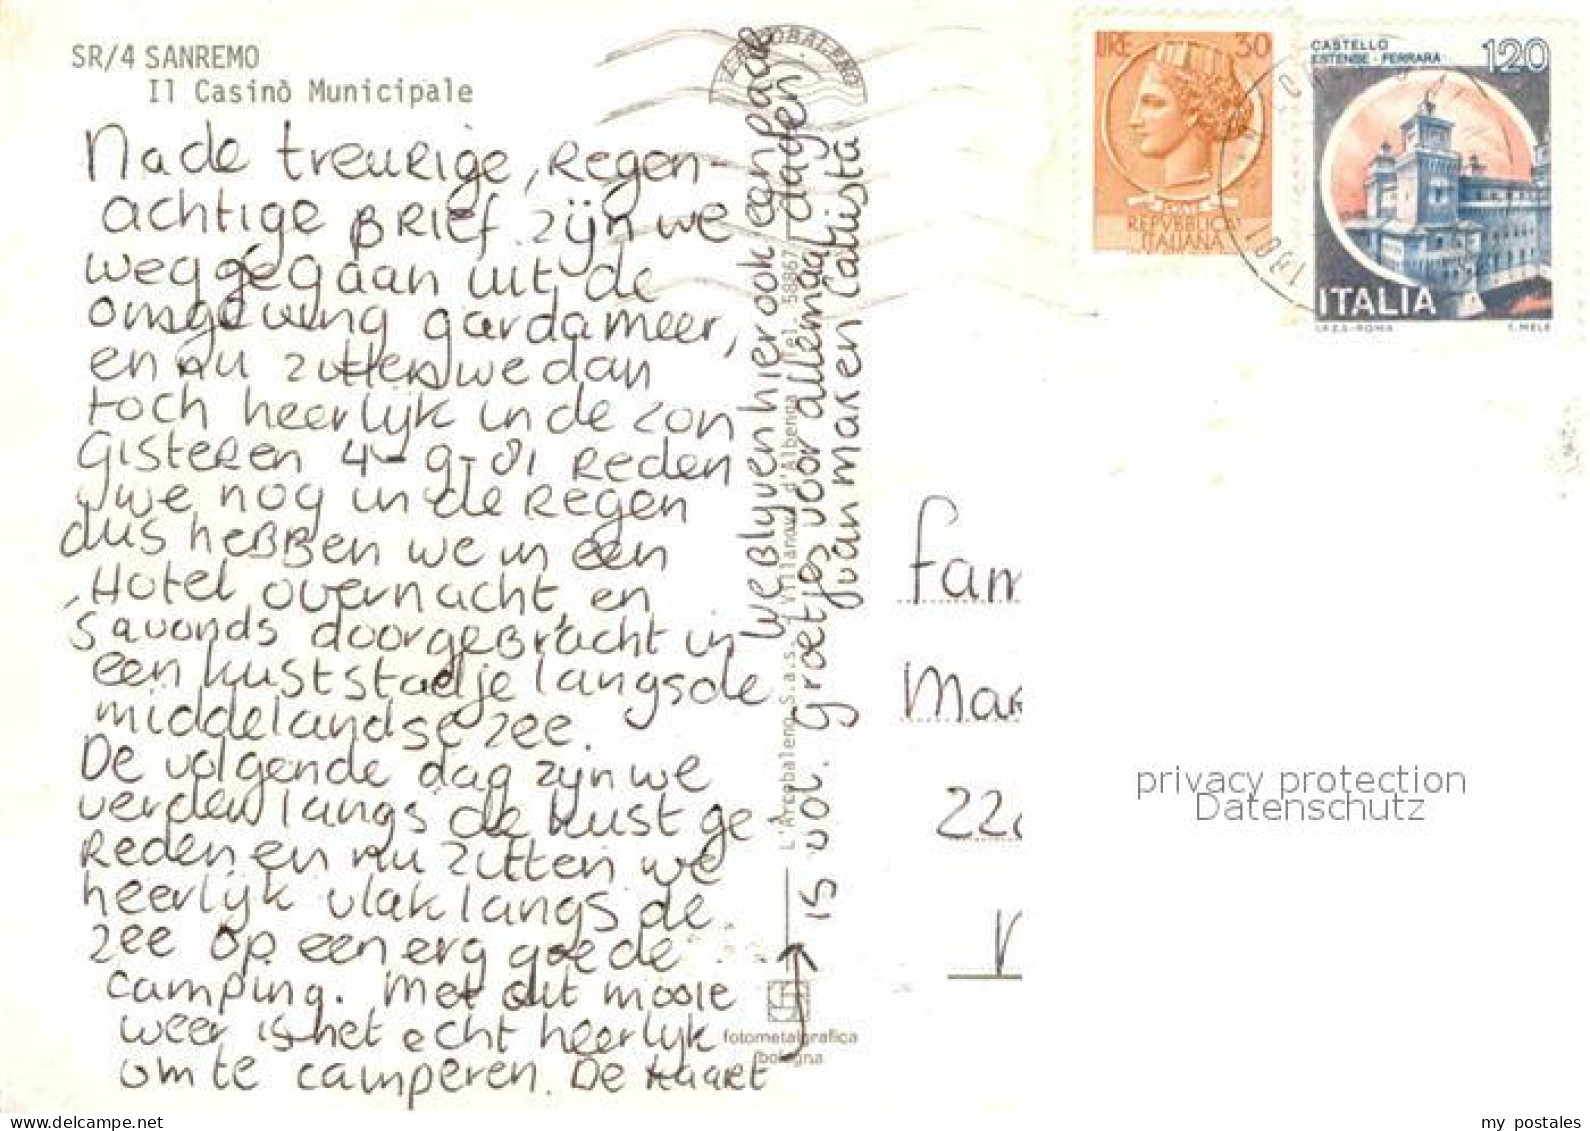 SR/4 SANREMO
Il Casinò Municipale
Na de treurige, regen-
achtige BRief zijn we
weggegaan uit de
omgeving gardameer,
en nu zitten we dan
toch heerlijk in de zon
Gisteren 4-9-81 reden
we nog in de Regen
dus heBBen we in een
Hotel overnacht, en
'savonds doorgeBracht in
een kuststadje langs de
middelandse zee.
De volgende dag zijn we
verder langs de kust ge
Reden en nu zitten we
heerlijk vlak langs de
zee op een erg goede
camping. Met dit mooie
weer is het echt heerlijk
om te camperen. De kaart
is vol. Groetjes voor allemaal
van Mar en Calista
We Blijven hier ook een paar
dagen
L'Arcobaleno S.a.s. - Villanova d'Albenga tel. 58867
L'ARCOBALENO
fotometalgrafica
bologna
LIRE 30
REPVBBLICA
ITALIANA
CASTELLO
ESTENSE - FERRARA
120
ITALIA
I.P.Z.S.-ROMA
T. MELE
Fam
Mar
22
privacy protection
Datenschutz
my postales